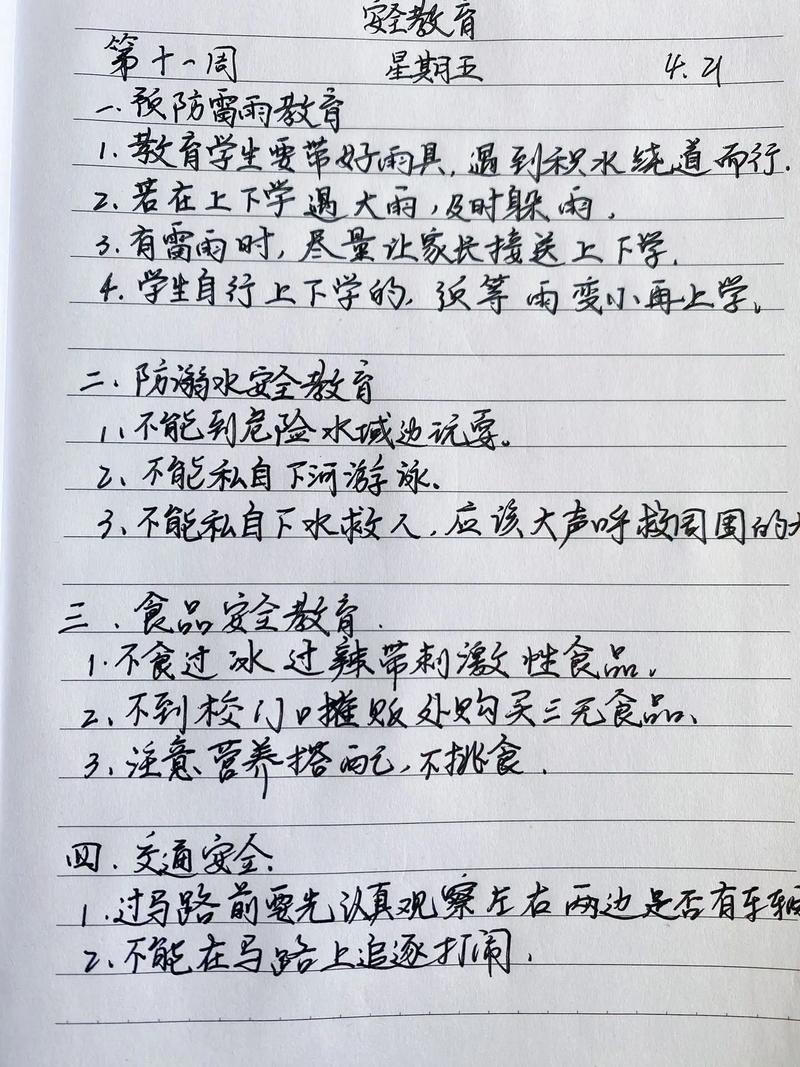 安全教育
第十一周 星期五 4.21
一、预防雷雨教育
1. 教育学生要带好雨具,遇到积水绕道而行.
2. 若在上下学遇大雨,及时躲雨.
3. 有雷雨时,尽量让家长接送上下学.
4. 学生自行上下学的,须等雨变小再上学。
二、防溺水安全教育
1、不能到危险水域边玩耍。
2、不能私自下河游泳.
3、不能私自下水救人,应该大声呼救周围的大
三.食品安全教育.
1. 不食过冰过辣带刺激性食品.
2、不到校门口摊贩处购买三无食品、
3、注意营养搭配,不挑食.
四.交通安全.
1. 过马路前要先认真观察左右两边是否有车辆
2、不能在马路上追逐打闹.